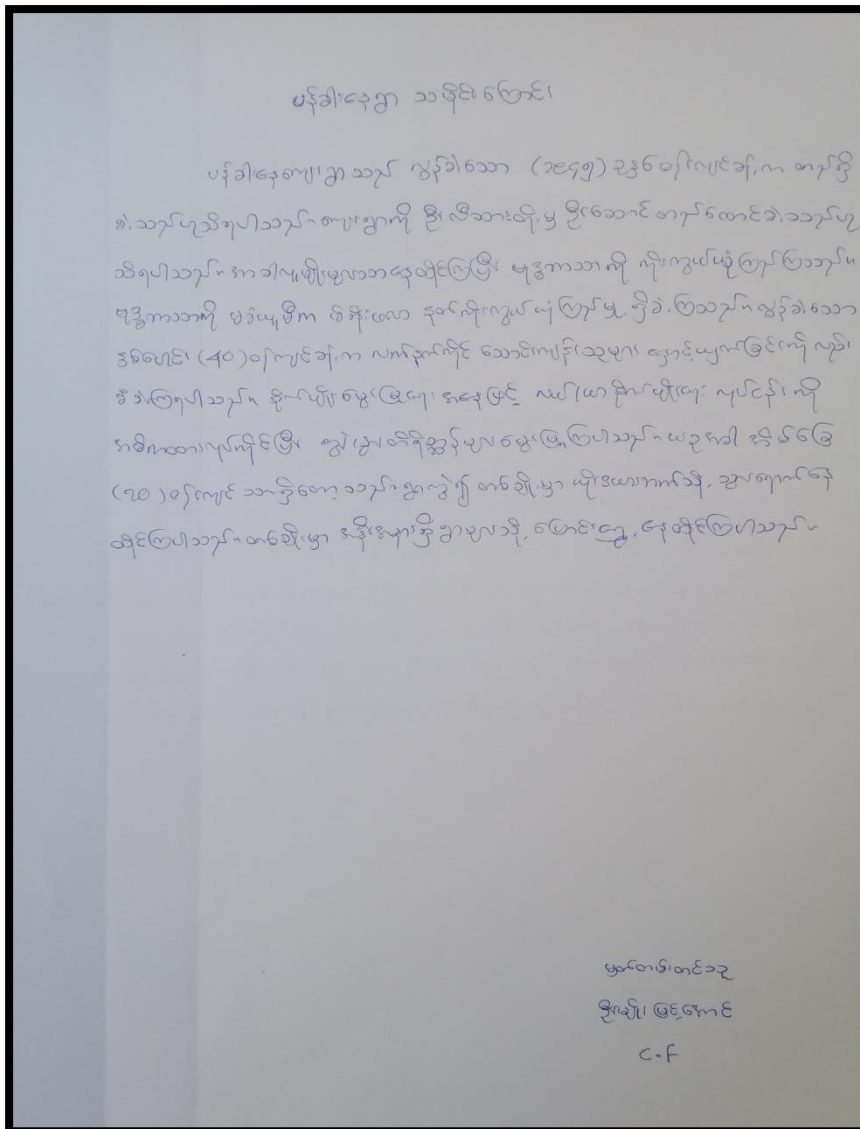 ပန်ခါးနေရွာ သမိုင်းကြောင်း
ပန်ခါးနေကျေးရွာသည် လွန်ခဲ့သော (၁၉၄၅) ခုနှစ်ဝန်းကျင်ခန့်က တည်ရှိ
ခဲ့သည်ဟုသိရပါသည်။ ကျေးရွာကို ဦးလီသားထိုးမှ ဦးဆောင်တည်ထောင်ခဲ့သည်ဟု
သိရပါသည်။ အာခါလူမျိုးများသာနေထိုင်ကြပြီး ဗုဒ္ဓဘာသာကို ကိုးကွယ်ယုံကြည်ကြသည်။
ဗုဒ္ဓဘာသာကို မခံယူမီက မိရိုးဖလာ နတ်ကိုးကွယ်ယုံကြည်မှု ရှိခဲ့ကြသည်။ လွန်ခဲ့သော
နှစ်ပေါင်း (၄၀) ဝန်းကျင်ခန့်က လက်နက်ကိုင် သောင်းကျန်းသူများ နှောင့်ယှက်ခြင်းကိုလည်း
ခံခဲ့ကြရပါသည်။ စိုက်ပျိုးမွေးမြူရေး အနေဖြင့် လယ်ယာစိုက်ပျိုးရေး လုပ်ငန်းကို
အဓိကထားလုပ်ကိုင်ပြီး ကျွဲ၊ နွား တိရိစ္ဆာန်များမွေးမြူကြပါသည်။ ယခုအခါ အိမ်ခြေ
(၂၀) ဝန်းကျင် သာရှိတော့သည်။ ရွာကွဲ၍ တစ်ချို့မှာ ယိုးဒယားဘက်သို့ သွားရောက်နေ
ထိုင်ကြပါသည်။ တစ်ချို့မှာ အနီးအနားရှိ ရွာများသို့ ပြောင်းရွှေ့နေထိုင်ကြပါသည်။
မှတ်တမ်းတင်သူ
ဦးမျိုးမြင့်အောင်
C.F